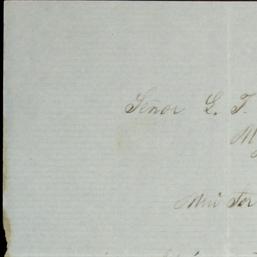 Señor L. T.
M
Mui Sor